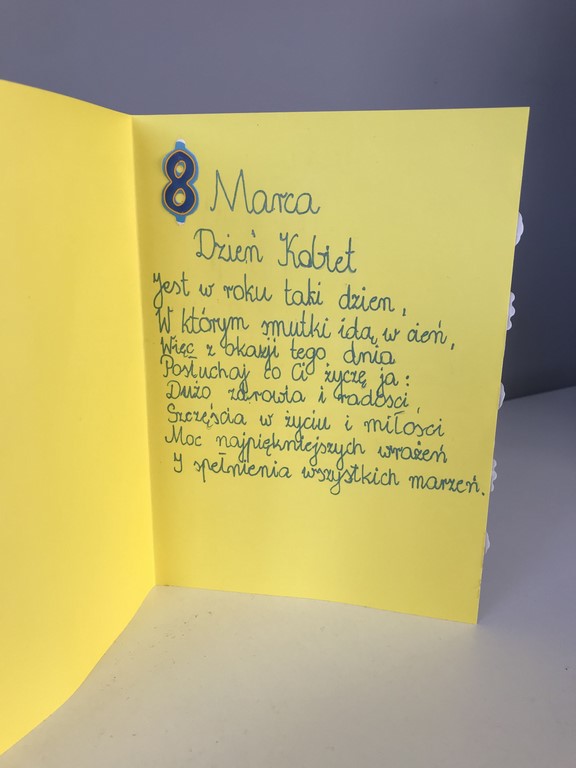 8 Marca
Dzień Kobiet
Jest w roku taki dzien,
W którym smutki idą w cień,
Więc z okazji tego dnia
Posłuchaj co Ci życzę ja:
Dużo zdrowia i radości,
Szczęścia w życiu i miłości
Moc najpiękniejszych wrażeń
I spełnienia wszystkich marzeń.